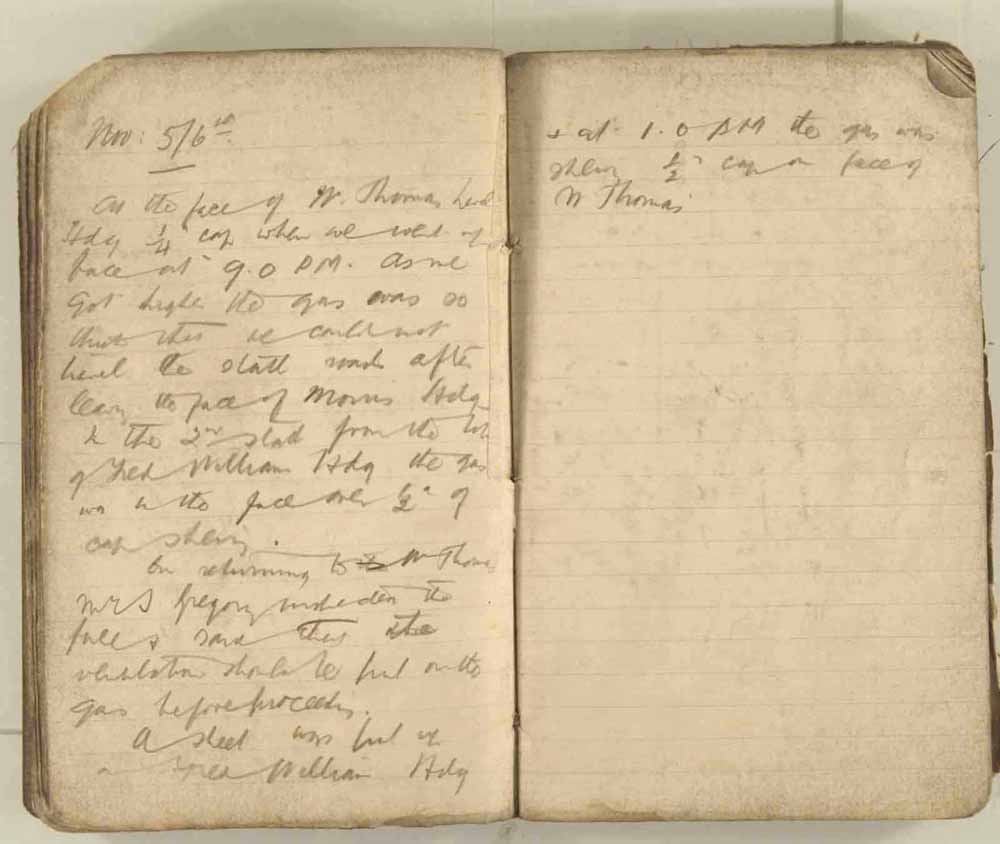 Nov: 5/6th
At the face of W. Thomas head
Hdg 1/4" cap when we went up
face at 9.0 PM. As we
got higher the gas was so
thick that we could not
the stall roads after
leaving the face of Morris Hdg
In the 2nd stall from the top
of Fred William Hdg the gas
was in the face over 1/2" of
cap shewing.
On returning to W Thomas
Mr S Gregory inspected the
face & said that the
ventilation should be put on the
gas before proceeding.
A sheet was put up
in Fred William Hdg
& at 1.0 AM the gas was
shewing 1/2" cap on face of
W Thomas